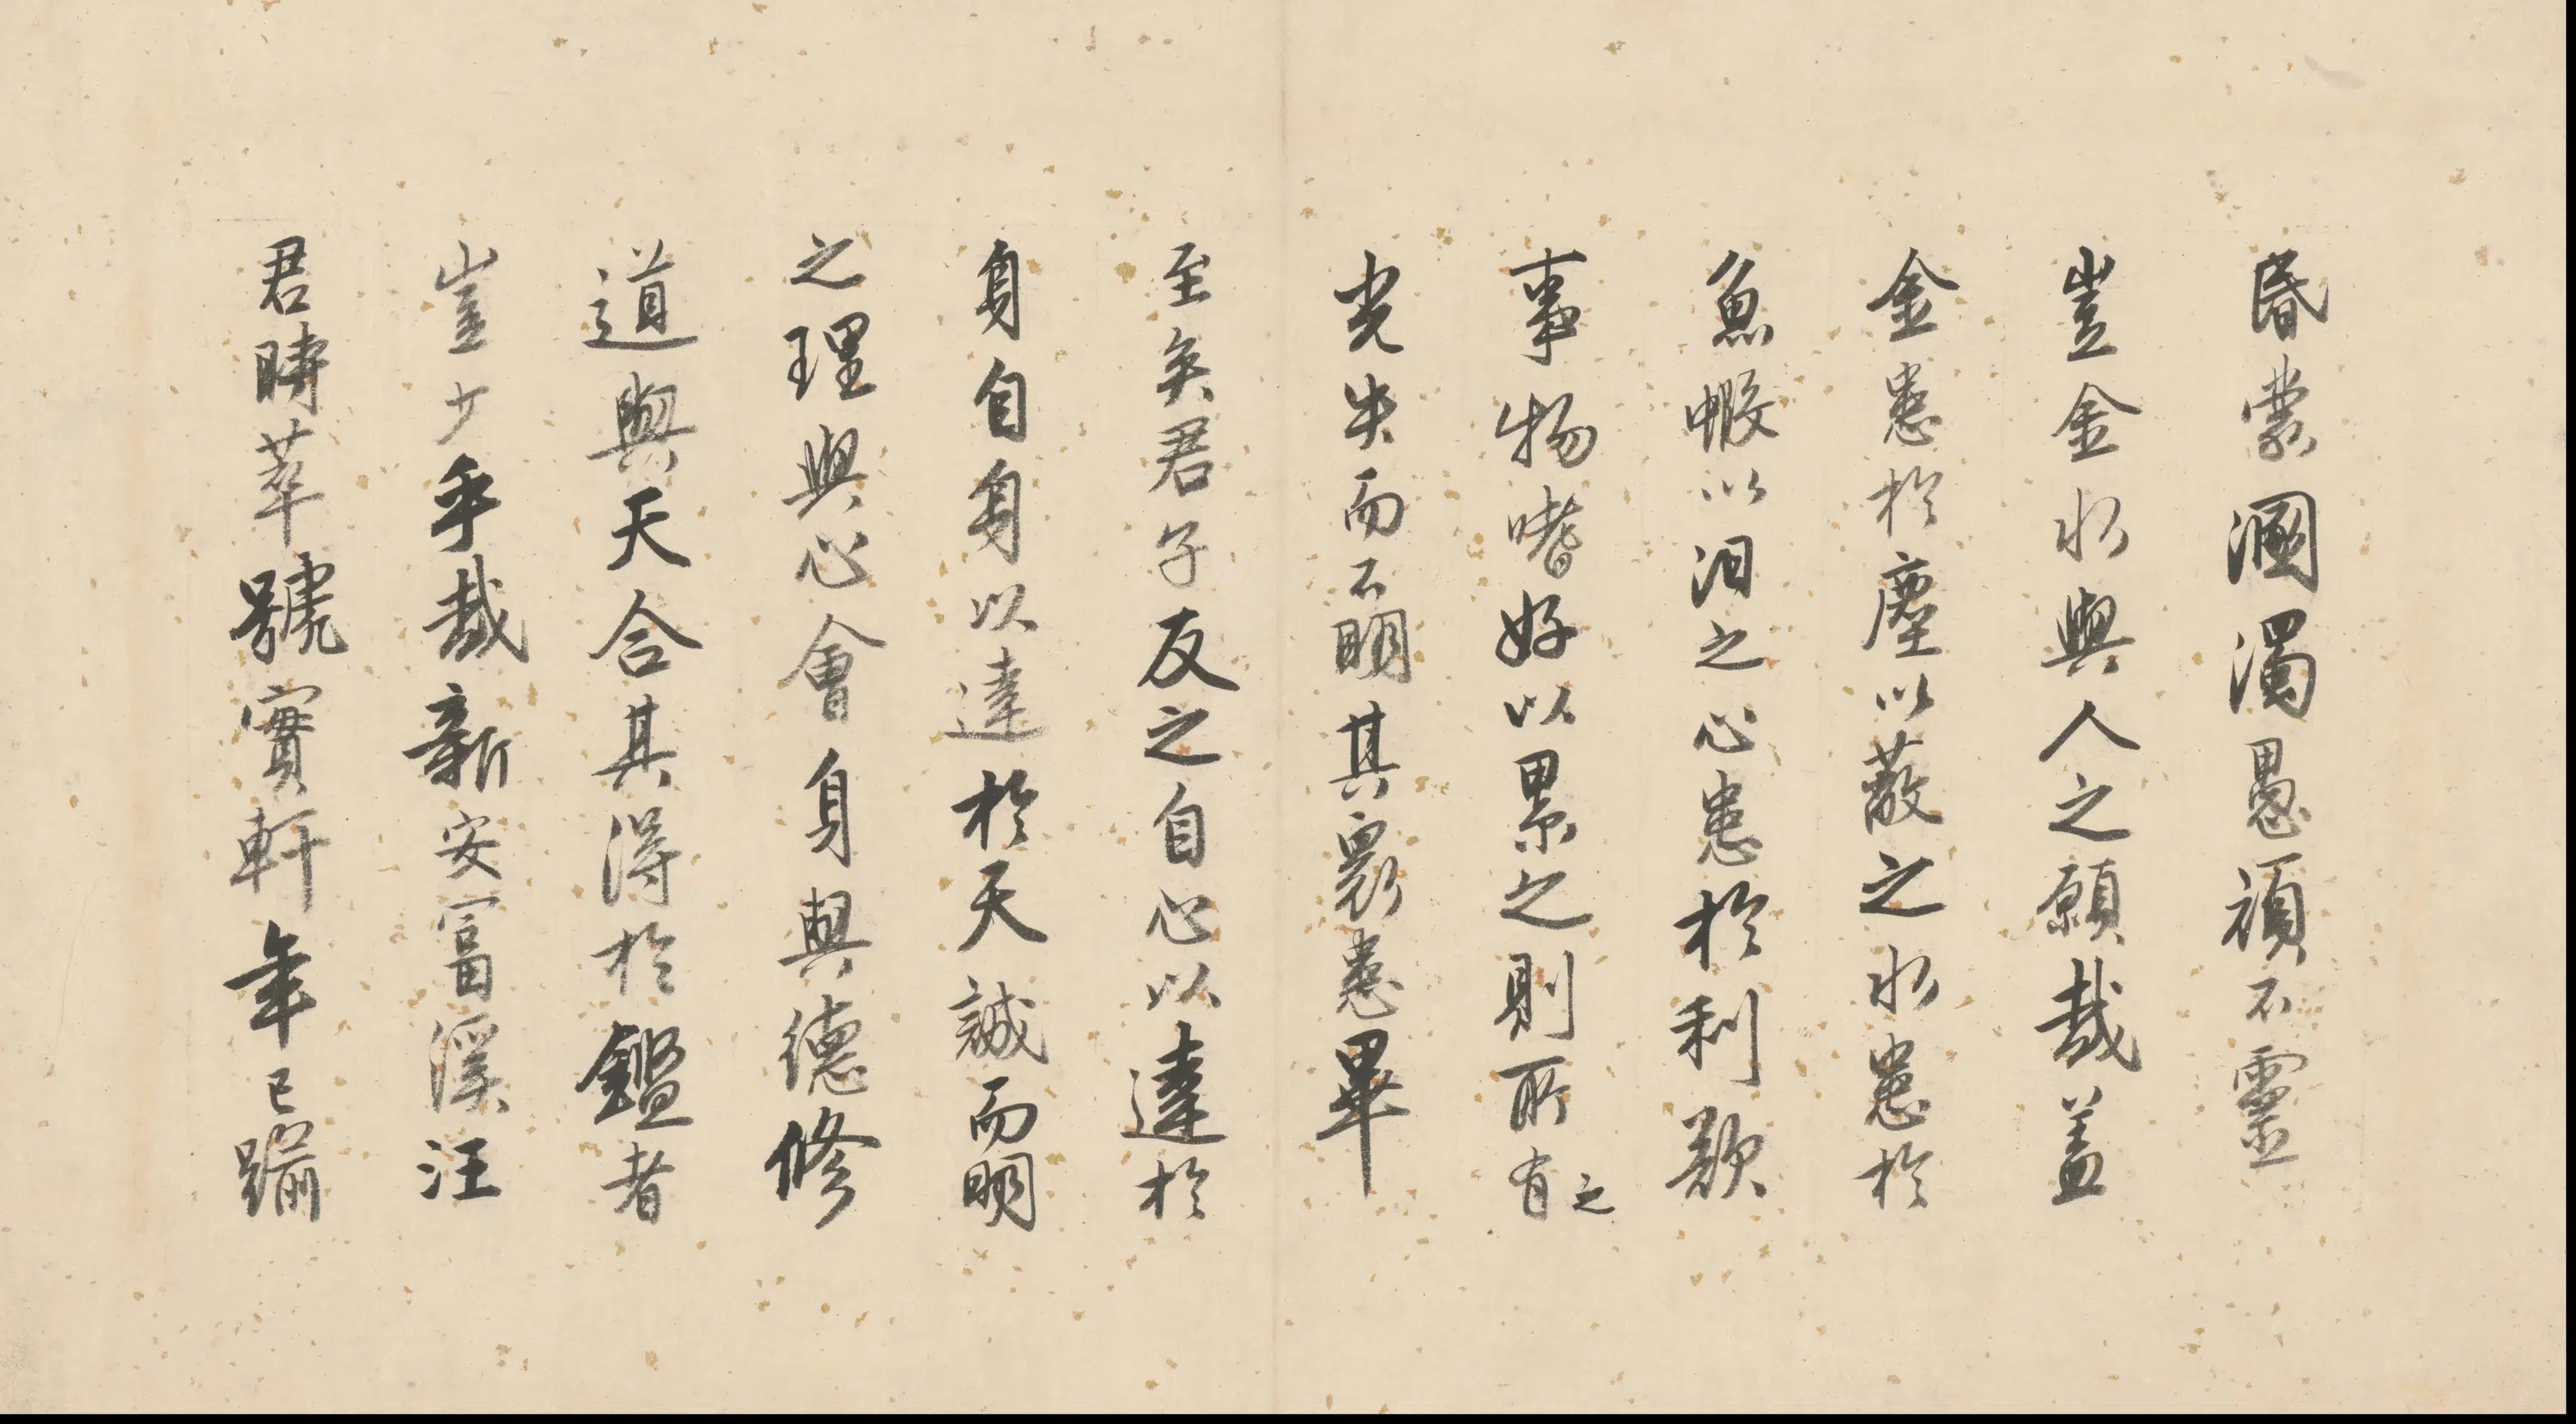 昏蒙溷濁愚頑不靈
豈金水與人之願哉蓋
金患於塵以蔽之水患於
魚蝦以汩之心患於利欲
事物嗜好以累之則所有之
光失而不明其眾患畢
至矣君子反之自心以達於
身自身以達於天誠而明
之理與心會身與德修
道與天合其得於鑑者
豈少乎哉新安富溪汪
君時萃號實軒年已踰